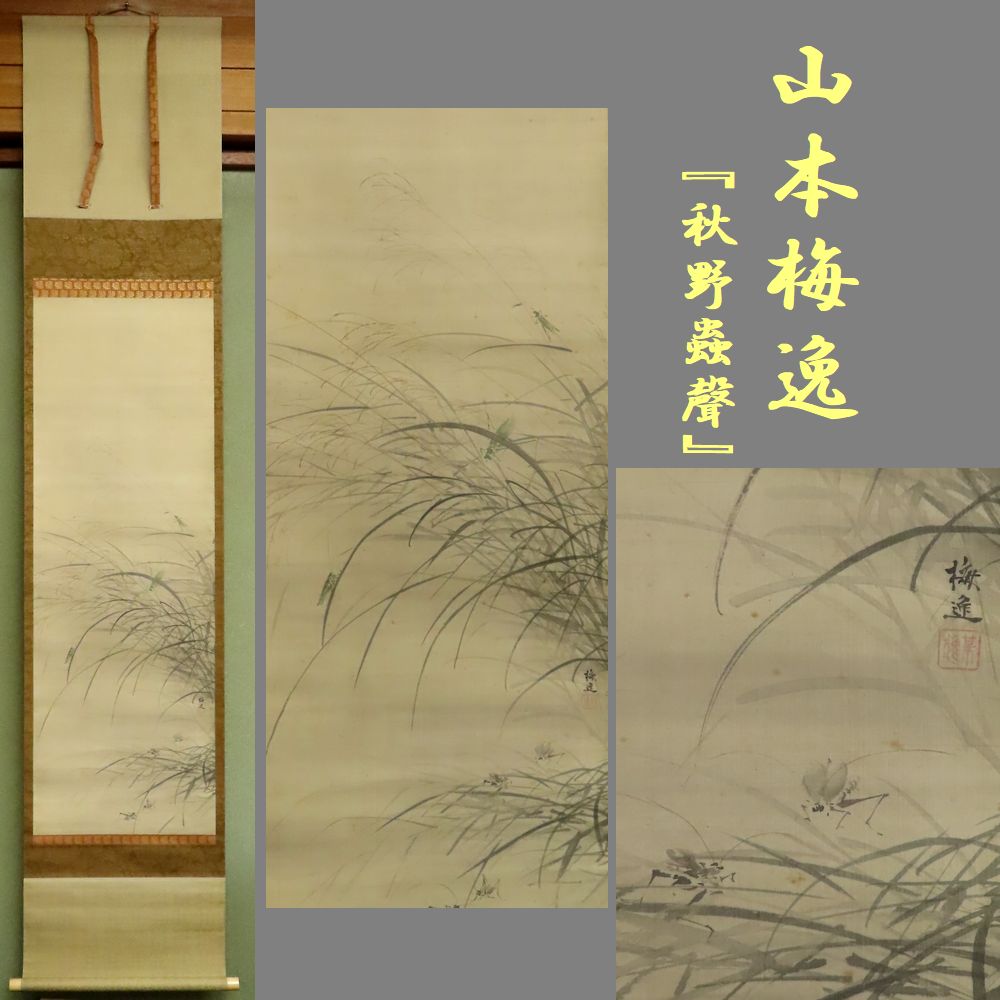 山本梅逸
『秋野蟲聲』
梅逸
梅逸